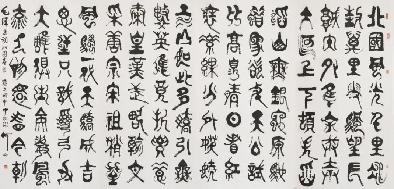 北國風光千里冰
封萬里雪飄望長
城內外惟餘莽莽
大河上下頓失滔
滔山舞銀蛇原馳
蠟象欲與天公試
比高須晴日看紅
裝素裹分外妖嬈
江山如此多嬌引
無數英雄競折腰
惜秦皇漢武略輸文
采唐宗宋祖稍遜
風騷一代天驕成吉
思汗只識彎弓射
大雕俱往矣數風
流人物還看今朝